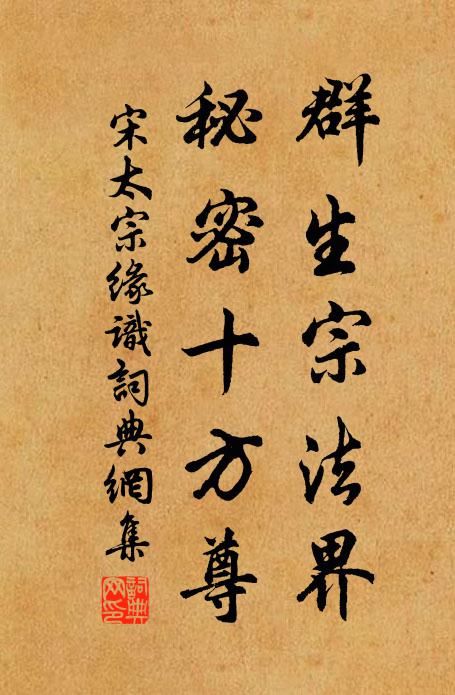 群生宗法界
秘密十方尊
宋太宗緣識詞典網集
詞典网印